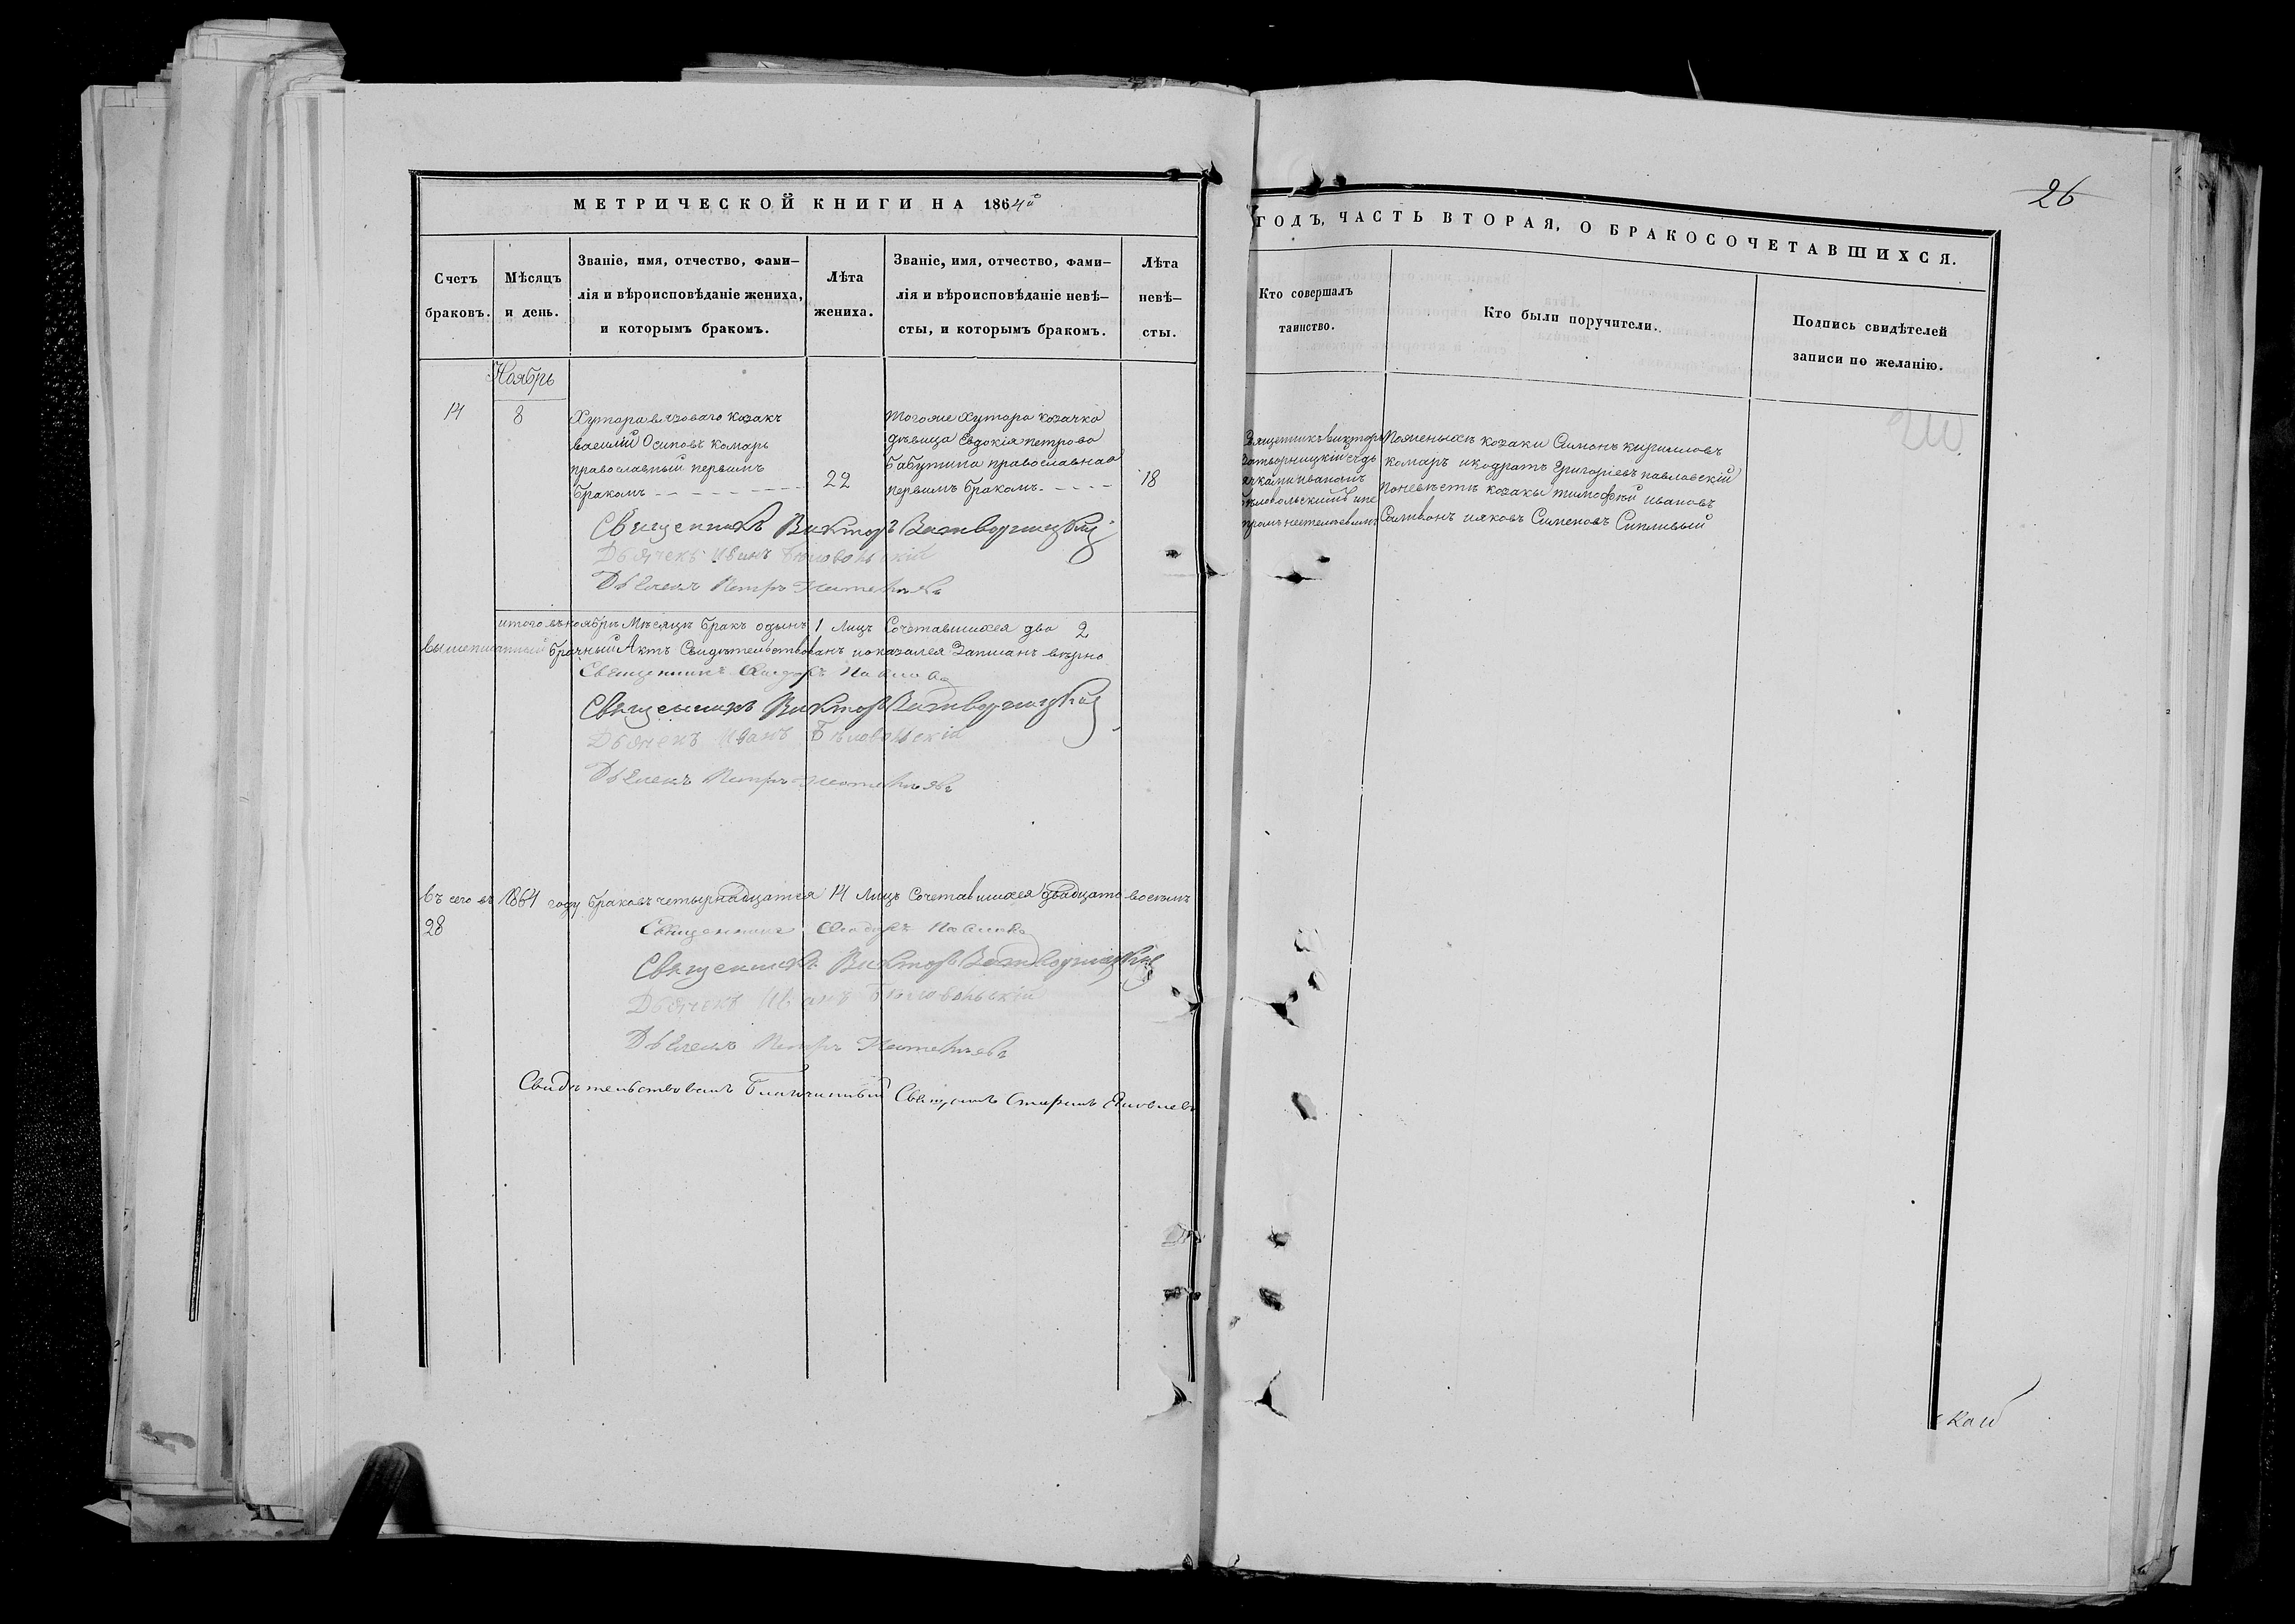 МЕТРИЧЕСКОЙ КНИГИ НА 1864й
ГОДЪ, ЧАСТЬ ВТОРАЯ, О БРАКОСОЧЕТАВШИХСЯ.
26
Счетъ браковъ.
Мѣсяцъ и день.
Званіе, имя, отчество, фами–
лія и вѣроисповѣданіе жениха,
и которымъ бракомъ.
Лѣта
жениха.
Званіе, имя, отчество, фами–
лія и вѣроисповѣданіе невѣ–
сты, и которымъ бракомъ.
Лѣта
невѣ–
сты.
Кто совершалъ
таинство.
Кто были поручители.
Подпись свидѣтелей
записи по желанію.
Ноябрь
14
8
Хутора вязоваго козакъ
василій Осиповъ комарь
православный первымъ
бракомъ
22
тогоже хутора козачка
дѣвица Евдокія петрова
бабутина православная
первымъ бракомъ.
18
Священникъ викторъ
Затворницкій съ дь
ячками иваномъ
Бѣловольскимъ и пе
тромъ
Поженыхѣ козаки Симонъ кириловъ
комаръ икодратъ Григоріевъ павловскій
поневѣстѣ козаки тимофѣй ивановъ
Силивонъ ияковъ Сименовъ Сипливый
Священникъ Викторъ Затворницкій
Дьячекъ Иванъ Бѣловольскій
Дьячекъ Петръ
итого въ ноябрѣ мѣсяцѣ бракъ одынъ 1 лицъ Сочетавшихся два 2
вышеписанный брачный Актъ Свидѣтельствованъ показался Записанъ вѣрно
Священникъ Павловъ
Священникъ Викторъ Затворницкій
Дьячекъ Иванъ Бѣловольскій
Дьячекъ Петръ
въ сего въ 1864 году браковъ четырнадцатся 14 лицъ Сочетавшихся двадцать восемъ
28
Священникъ Павловъ
Священникъ Викторъ Затворницкій
Дьячекъ Иванъ Бѣловольскій
Дьячекъ Петръ
Свидѣтельствовалъ Благочинный Священникъ Стефанъ